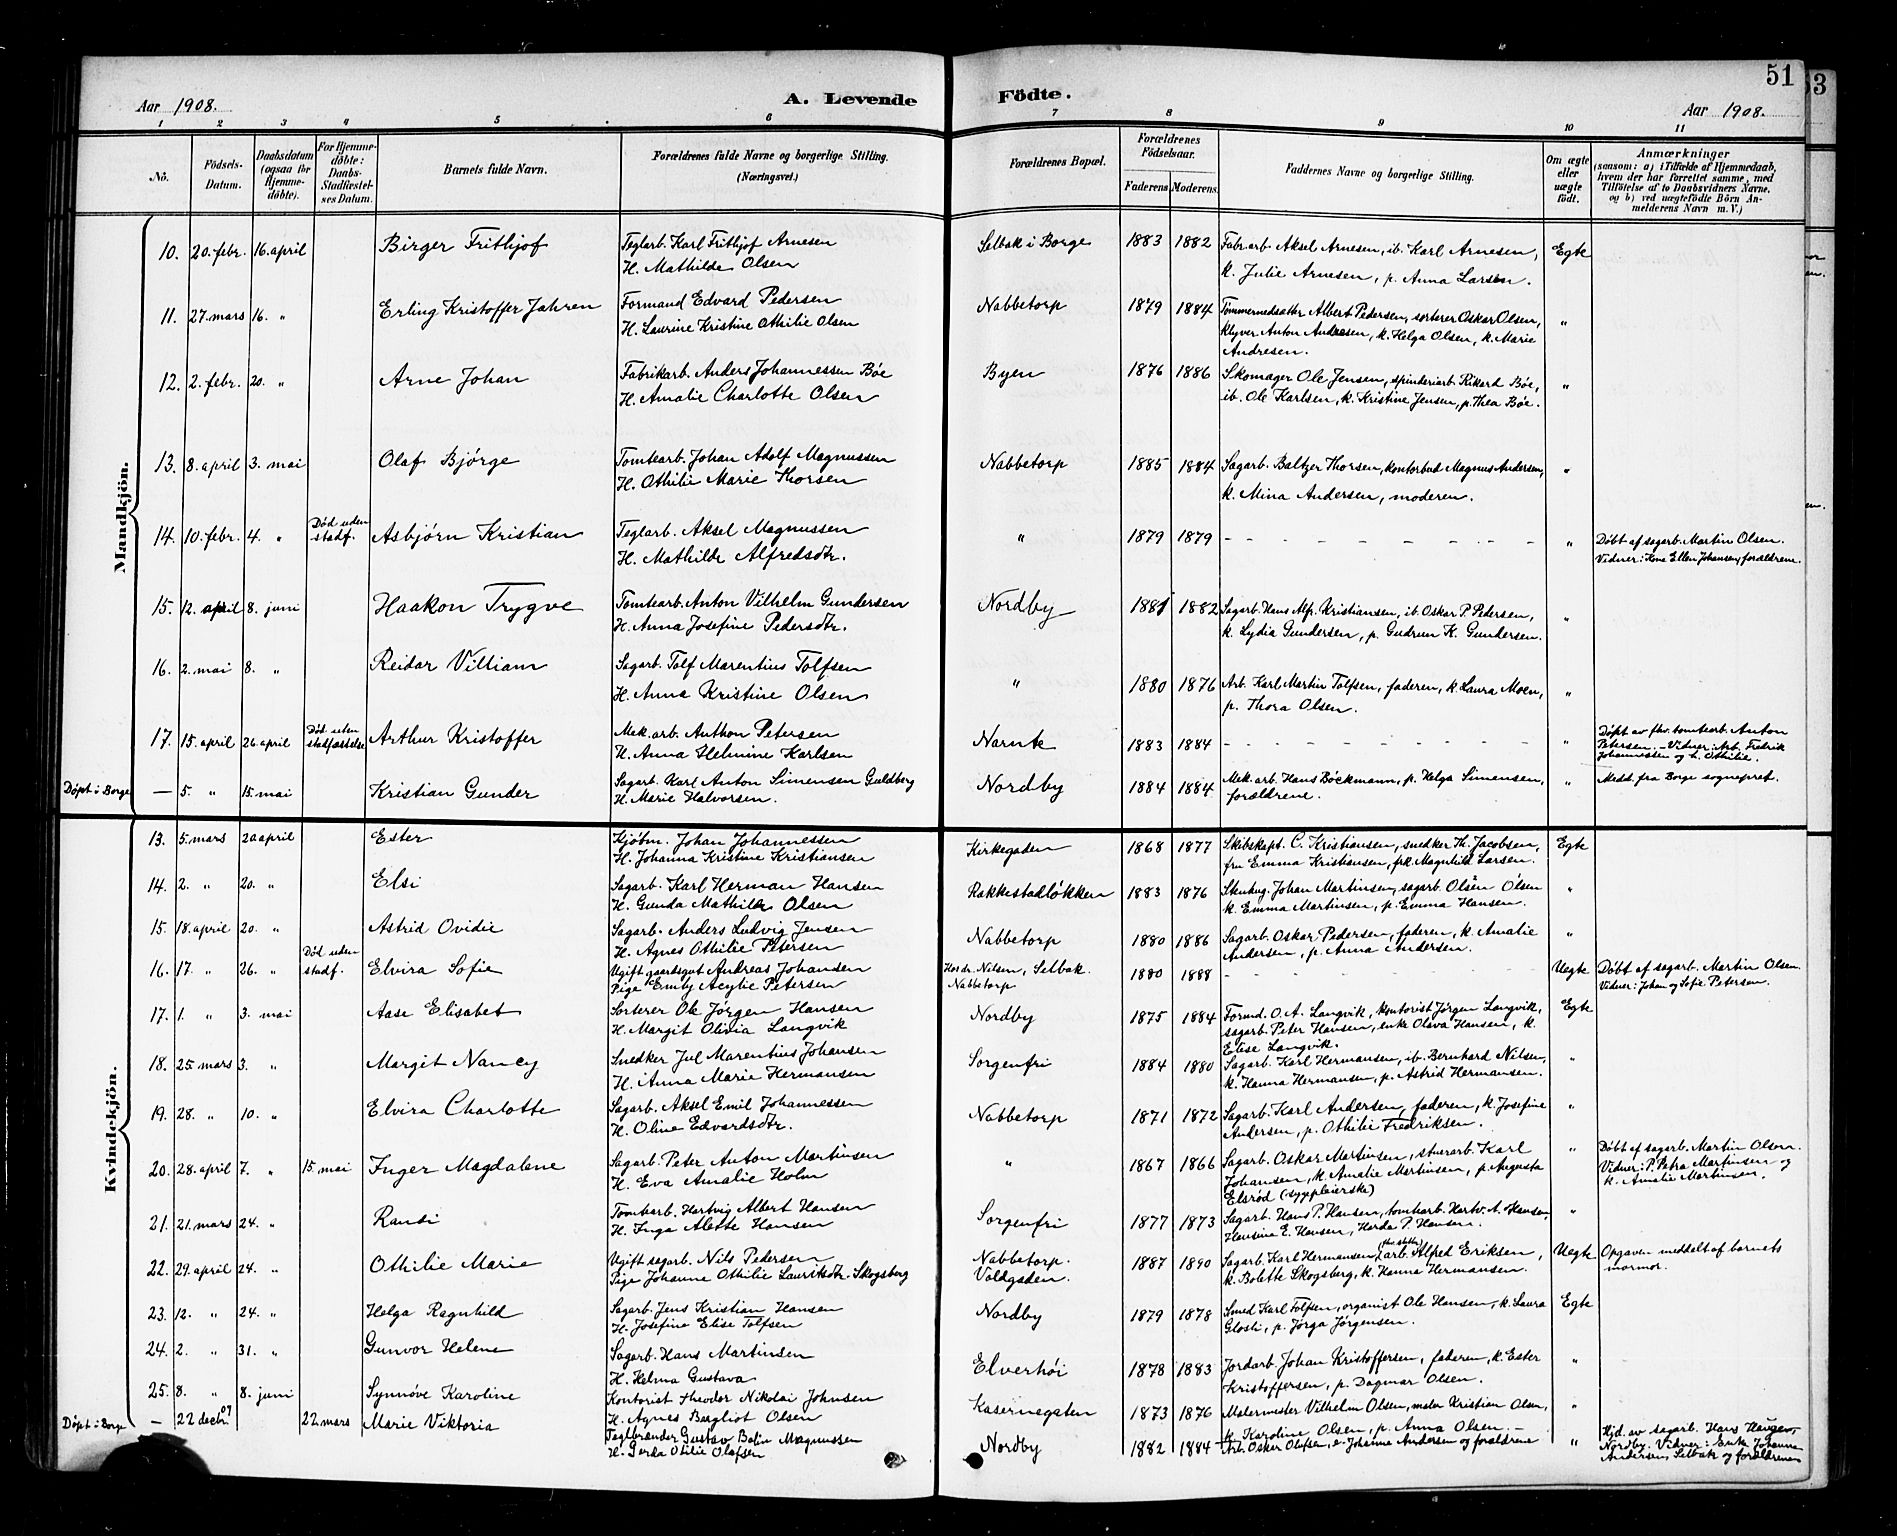 51
53
Aar 1908. A. Levende Födte. Aar 1908.
1 2 3 4 5 6 7 8 9 10 11
No. Födsels-Datum. Daabsdatum (ogsaa for Hjemme-döbte). For Hjemme-döbte: Daabs-Stadfæstel-ses Datum. Barnets fulde Navn. Forældrenes fulde Navne og borgerlige Stilling. (Næringsvei.) Forældrenes Bopæl. Forældrenes Födselsaar. Faderens. Moderens. Faddernes Navne og borgerlige Stilling. Om ægte eller uægte födt. Anmærkninger (saasom: a) i Tilfælde af Hjemmedaab, hvem der har forrettet samme, med Tilföielse af to Daabsvidners Navne, og b) ved uægtefödte Börn An-melderens Navn m. V.)
Mandkjön.
10. 20. febr. 16. april Birger Frithjof Teglarb. Karl Frithjof Arnesen Selbak i Borge 1883 1882 Fabr.arb. Aksel Arnesen, ib. Karl Arnesen, Egte
H. Mathilde Olsen k. Julie Arnesen, p. Anna Larsen.
11. 27. mars 16. " Erling Kristoffer Jahren Formand Edvard Pedersen Nabbetorp 1879 1884 Tømmermedsætter Albert Pedersen, sorterer Oskar Olsen, "
H. Laurine Kristine Othilie Olsen kløver Anton Andresen, k. Helga Olsen, k. Marie
Andresen.
12. 2. febr. 20. " Arne Johan Fabrikarb. Anders Johannessen Bøe Byen 1876 1886 Skomager Ole Jensen, spinderiarb. Rikard Bøe, "
H. Amalie Charlotte Olsen ib. Ole Karlsen, k. Kristine Jensen, p. Thea Bøe.
13. 8. april 3. mai Olaf Bjørge Tomtearb. Johan Adolf Magnussen Nabbetorp 1885 1884 Sagarb. Baltzer Thorsen, kontorbud Magnus Andersen, "
H. Othilie Marie Thorsen k. Mina Andersen, moderen.
14. 10. febr. 4. " Død uden stadf. Asbjørn Kristian Teglarb. Aksel Magnussen " 1879 1879 - - - - - - - - " Döbt af sagarb. Martin Olsen.
H. Mathilde Alfredsdtr. Vidner: Kone Ellen Johansen, forældrene.
15. 12. april 8. juni Haakon Trygve Tomtearb. Anton Vilhelm Gundersen Nordby 1881 1882 Sagarb. Hans Alf. Kristiansen, ib. Oskar P. Pedersen, "
H. Anna Josefine Pedersdtr. k. Lydia Gundersen, p. Gudrun K. Gundersen.
16. 2. mai 8. " Reidar Villiam Sagarb. Tolf Marentius Tolfsen " 1880 1876 Arb. Karl Martin Tolfsen, faderen, k. Laura Moen, "
H. Anna Kristine Olsen p. Thora Olsen.
17. 15. april 26. april Død uten stadfæstelse Arthur Kristoffer Mek. arb. Anthon Petersen 1883 1884 - - - - - - - - " Døpt av fhv. tomtearb. Anton
H. Anna Helmine Karlsen Petersen. - Vidner: Arb. Fredrik
Johannessen og h. Othilie.
Døpt i Borge — 5. " 15. mai Kristian Gunder Sagarb. Karl Anton Simensen Guldberg Nordby 1884 1884 Mek. arb. Hans Böckmann, p. Helga Simensen, " Medd. fra Borge sognepret.
H. Marie Halvorsen. forældrene.
Kvindekjön.
13. 5. mars 20 april Ester Kjøbm. Johan Johannessen Kirkegaden 1868 1877 Skibskapt. C. Kristiansen, snedker Th. Jacobsen, Egte
H. Johanna Kristine Kristiansen fru Emma Kristiansen, frk. Magnhild Larsen.
14. 2. " 20. " Elsi Sagarb. Karl Herman Hansen Rakkestadløkken 1883 1876 Johan Martinsen, sagarb. Olsen "
H. Gunda Mathilde Olsen k. Emma Martinsen, p. Emma Hansen.
15. 18. april 20. " Astrid Ovidie Sagarb. Anders Ludvig Jensen Nabbetorp 1880 1886 Sagarb. Oskar Pedersen, faderen, k. Amalie "
H. Agnes Othilie Petersen Andersen, p. Anna Andersen.
16. 17. " 26. " Død uden stadf. Elvira Sofie Ugift gaardsgut Andreas Johansen Hos dr. Nilsen, Selbak. 1880 1888 - - - - - - - - Uegte Döbt af sagarb. Martin Olsen.
Pige Emily Petersen Nabbetorp Vidner: Johan og Sofie Petersen.
17. 1. " 3. mai Aase Elisabet Sorterer Ole Jørgen Hansen Nordby 1875 1884 Formd. O. A. Langvik, kontorist Jørgen Langvik, Egte
H. Margit Olivia Langvik sagarb. Peter Hansen, enke Olava Hansen, k.
Elise Langvik.
18. 25. mars 3. " Margit Nancy Snedker Jul Marentius Johansen Sorgenfri 1884 1880 Sagarb. Karl Hermansen, ib. Bernhard Nilsen, "
H. Anna Marie Hermansen k. Hanna Hermansen, p. Astrid Hermansen.
19. 28. " 10. " Elvira Charlotte Sagarb. Aksel Emil Johannessen Nabbetorp 1871 1872 Sagarb. Karl Andersen, faderen, k. Josefine "
H. Oline Edvardsdtr. Andersen, p. Othilie Fredriksen.
20. 28. april 7. " 15. mai Inger Magdalene Sagarb. Peter Anton Martinsen " 1867 1866 Sagarb. Oskar Martinsen, stuerarb. Karl " Döbt af sagarb. Martin Olsen.
H. Eva Amalie Holm Johansen, k. Amalie Martinsen, p. Augusta Vidner: P. Petra Martinsen og
Elsrød (sygpleierske) k. Amalie Martinsen.
21. 21. mars 24. " Randi Tomtearb. Hartvig Albert Hansen Sorgenfri 1877 1873 Sagarb. Hans P. Hansen, tomtearb. Hartv. A. Hansen, "
H. Inga Alette Hansen Hensine E. Hansen, Harda P. Hansen.
22. 29. april 24. " Othilie Marie Ugift sagarb. Nils Pedersen Nabbetorp. 1887 1890 Sagarb. Karl Hermansen, arb. Alfred Eriksen, Uegte Opgaven meddelt af barnets
Pige Johanne Othilie Lauriksdtr. Skogsberg Voldgaden. k. Bolette Skogsberg, k. Hanna Hermansen. mormor.
23. 12. " 24. " Helga Ragnhild Sagarb. Jens Kristian Hansen Nordby 1879 1878 Smed Karl Tolfsen, organist Ole Hansen, k. Laura Egte
H. Josefine Elise Tolfsen Glosli, p. Jørga Jørgensen.
24. 2. " 31. " Gunvor Helene Sagarb. Hans Martinsen Elverhöi 1878 1883 Jordarb. Johan Kristoffersen, faderen, k. Ester "
H. Helma Gustava Kristoffersen, p. Dagmar Olsen.
25. 8. " 8. juni Synnøve Karoline Kontorist Theodor Nikolai Johnsen Kasernegaten 1873 1876 Malermester Vilhelm Olsen, maler Kristian Olsen, "
H. Agnes Bergliot Olsen k. Karoline Olsen, p. Anna Olsen. —
Døpt i Borge — 22 decbr. 07 22. mars Marie Viktoria Teglbrænder Gustav Bolin Magnussen Nordby 1882 1884 Arb. Oskar Olafsen, e. Johanne Andersen og forældrene " Hjd. av sagarb. Hans Haugen,
H. Gerda Otilie Olafsen Nordby. Vidner: Enk. Johanne
Andersen, Selbak og forældrene